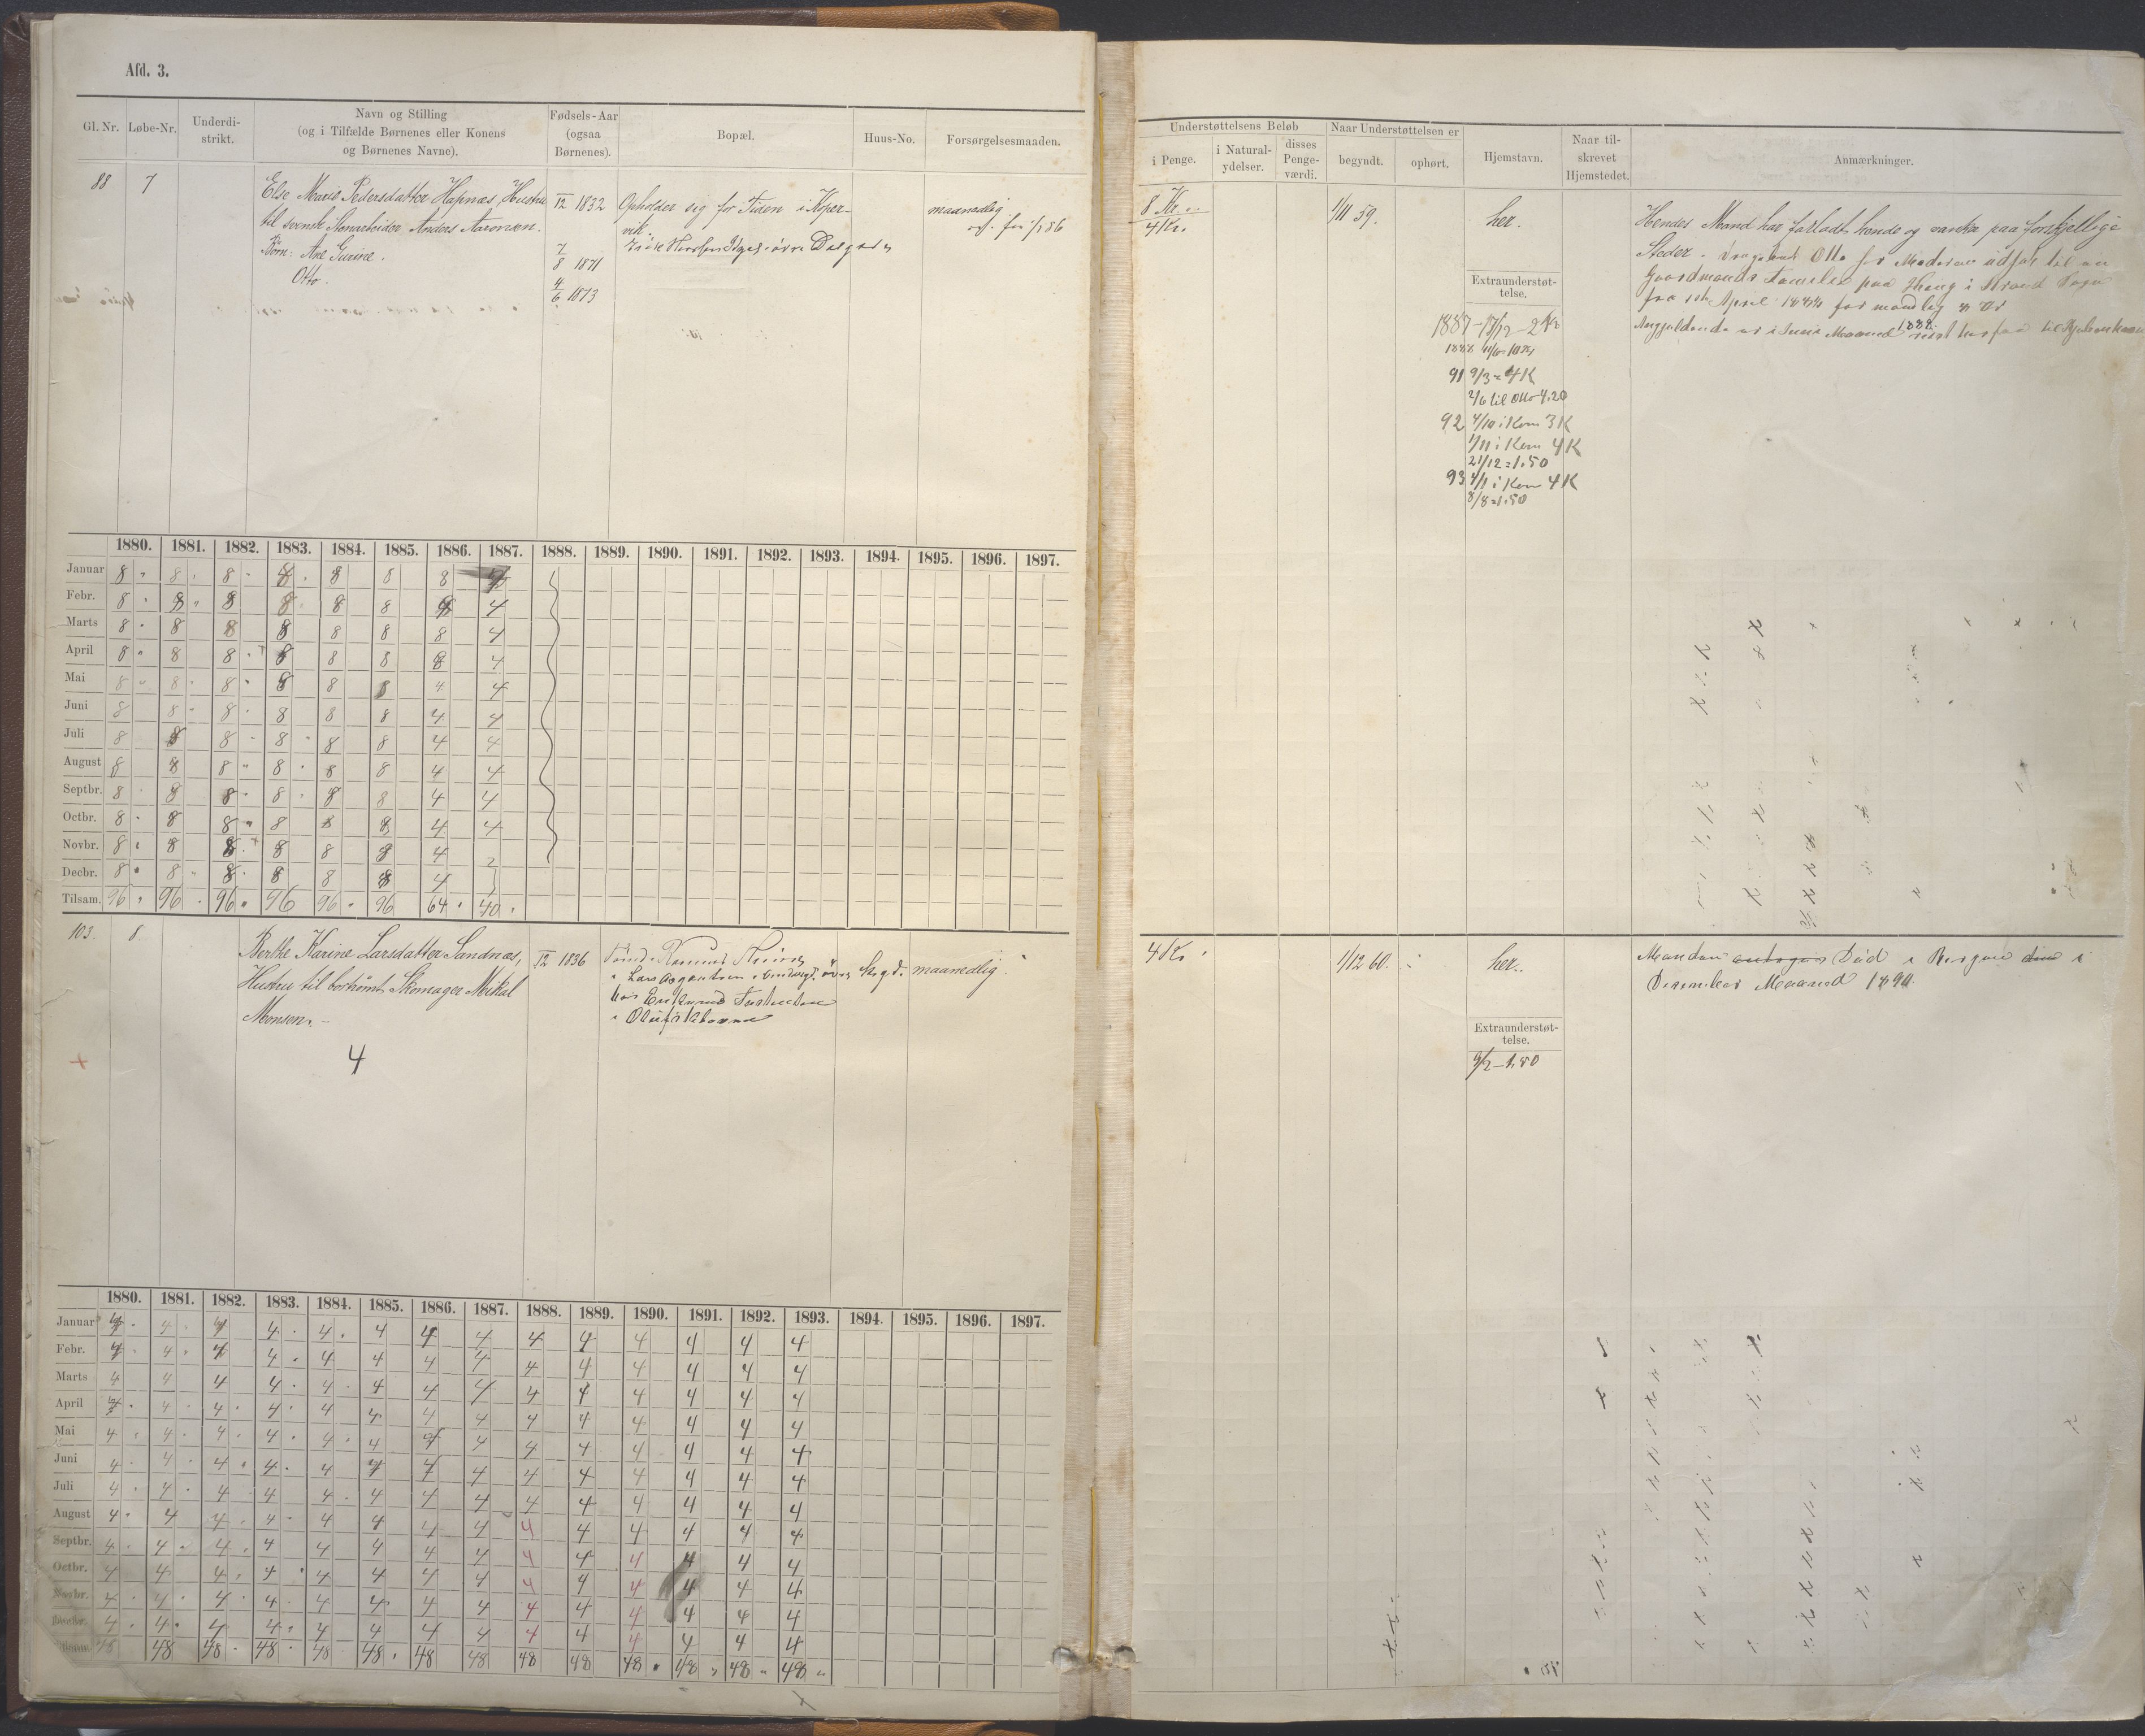 Afd. 3.
Gl. Nr. Løbe-Nr. Underdi-strikt. Navn og Stilling (og i Tilfælde Børnenes eller Konens og Børnenes Navne). Fødsels-Aar (ogsaa Børnenes). Bopæl. Huus-No. Forsørgelsesmaaden.
88 7 Else Marie Pedersdatter Hapnæs, Hustru IV/12 1832 Opholder sig for Tiden i Koper- maanedlig.
til svensk Stenarbeider Anders Aaronsen. vik.
Børn: Ane Gurine. 7/8 1871
Otto. 4/6 1873
1880. 1881. 1882. 1883. 1884. 1885. 1886. 1887. 1888. 1889. 1890. 1891. 1892. 1893. 1894. 1895. 1896. 1897.
Januar 8 8 8 8 8 8 8 4
Febr. 8 8 8 8 8 8 8 4
Marts 8 8 8 8 8 8 8 4
April 8 8 8 8 8 8 8 4
Mai 8 8 8 8 8 8 4 4
Juni 8 8 8 8 8 8 4 4
Juli 8 8 8 8 8 8 4 4
August 8 8 8 8 8 8 4 4
Septbr. 8 8 8 8 8 8 4 4
Octbr. 8 8 8 8 8 8 4 4
Novbr. 8 8 8 8 8 8 4
Decbr. 8 8 8 8 8 8 4
Tilsam. 96 96 96 96 96 96 64 40
103. 8. Berthe Karine Larsdatter Sandnæs, 1836 maanedlig.
Hustru til bortrømt Skomager Mikal
Monsen.
4
1880. 1881. 1882. 1883. 1884. 1885. 1886. 1887. 1888. 1889. 1890. 1891. 1892. 1893. 1894. 1895. 1896. 1897.
Januar 4 4 4 4 4 4 4 4 4 4 4 4 4 4
Febr. 4 4 4 4 4 4 4 4 4 4 4 4 4 4
Marts 4 4 4 4 4 4 4 4 4 4 4 4 4 4
April 4 4 4 4 4 4 4 4 4 4 4 4 4 4
Mai 4 4 4 4 4 4 4 4 4 4 4 4 4 4
Juni 4 4 4 4 4 4 4 4 4 4 4 4 4 4
Juli 4 4 4 4 4 4 4 4 4 4 4 4 4 4
August 4 4 4 4 4 4 4 4 4 4 4 4 4 4
Septbr. 4 4 4 4 4 4 4 4 4 4 4 4 4 4
Octbr. 4 4 4 4 4 4 4 4 4 4 4 4 4 4
Novbr. 4 4 4 4 4 4 4 4 4 4 4 4 4 4
Decbr. 4 4 4 4 4 4 4 4 4 4 4 4 4 4
Tilsam. 48 48 48 48 48 48 48 48 48 48 48 48 48 48
Understøttelsens Beløb Naar Understøttelsen er Hjemstavn. Naar til-skrevet Hjemstedet. Anmærkninger.
i Penge. i Natural-ydelser. disses Penge-værdi. begyndt. ophørt.
8 Kr. 1/11 59. her. Hendes Mand har forladt hende og vanker paa forskjellige
4 Kr. Steder. Otto for Moderen udsat til en
Extraunderstøt-telse. Gaardmands Familie paa i Strand
1887 – 17/12 – 2 Kr April for
i Juni Maaned 1888
91 9/3 = 4 K
2/6 til Otto 4,20
92 4/10 i Kom 3 K
1/11 i Kom 4 K
21/12 = 1.50
93 4/1 i Kom 4 K
8/8 = 1.50
4 Kr. 1/12 60. her. Manden Død i Bergen i
December Maaned 1890.
Extraunderstøt-telse.
9/2 – 1,50